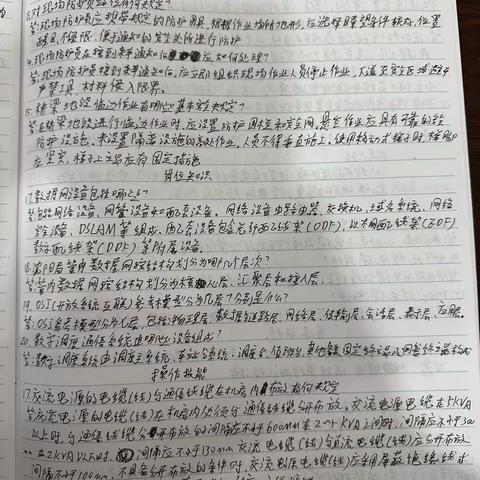 答:现场防护员应按规定的防护用具,根据作业场所地形,应选择瞭望条件较好,位置
醒目、不侵限、便于通知的安全处所进行防护
14.现场防护员在接到来车通知后应如何处理?
答:现场防护员接到来车通知后,应立即组织现场作业人员停止作业,下道至安全区域避车
严禁工具、材料侵入限界。
15.桥梁地段临边作业有哪些基本安全规定?
答:在桥梁地段进行临边作业时,应设置防护围栏和安全网,悬空作业应具有可靠的安全
防护设施。未设置隔离设施的
人员不得垂直施工。使用移动式梯子时,梯脚
应坚实,梯子上端应有固定措施
岗位知识
17.数据网设备包括哪些?
答:包括网络设备、网管设备和配套设备。网络设备由路由器、交换机、域名系统、网络
安全设备、DSLAM等组成,配套设备包含光纤配线架(ODF)、以太网配线架(EDF)
数字配线架(DDF)等附属设备。
局管内数据网按结构划分为哪几个层次?
答:管内数据网按结构划分为核心层、汇聚层和接入层。
19.OSI(开放系统互联)参考模型分为几层?分别是什么?
答:OSI参考模型分为七层,包括:物理层、数据链路层、网络层、传输层、会话层、表示层、应用层。
20.数字调度通信系统由哪些设备组成?
答:数字调度系统由调度主系统、车站分系统、调度台、值班台、其他各类固定终端及网管终端等构成
操作技能
17.交流电源的电缆(线)与通信线缆在机房内布放有何规定
答:交流电源的电缆(线)在机房内必须与通信线缆分开布放。交流电源电缆在5KVA
以上时,与通信线缆分开布放的间隔应不小于600mm在2~5KVA之间时,间隔应不小于300
mm在2KVA以下时,间隔应不小于130mm交流电缆(线)与直流电缆(线)应分开布放
间隔不小于100mm,不具备分开布放的条件时,交流电源电缆(线)应采用屏蔽线缆或